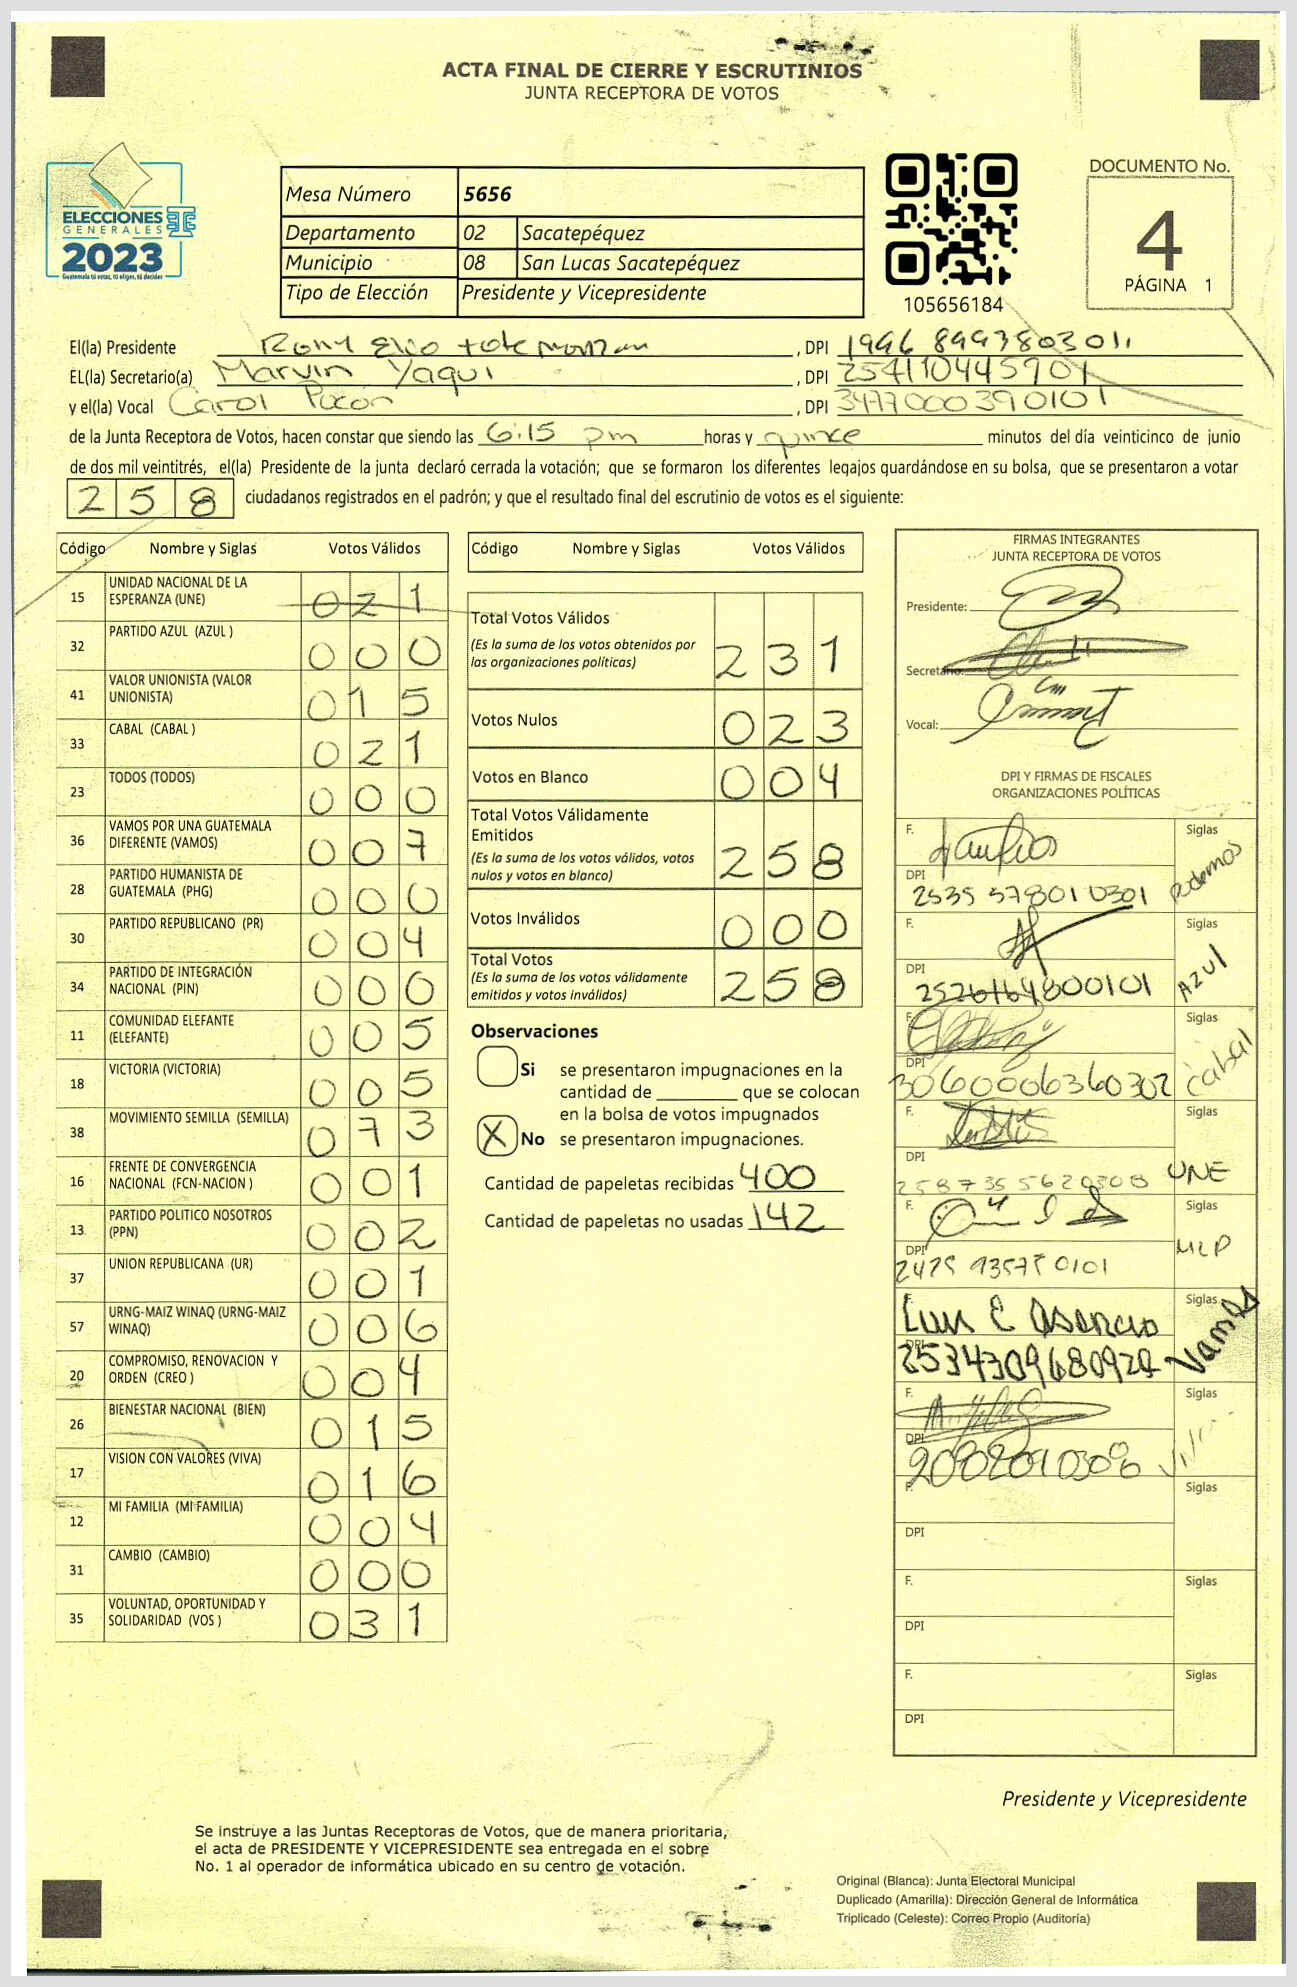 ACTA FINAL DE CIERRE Y ESCRUTINIOS
JUNTA RECEPTORA DE VOTOS
ELECCIONES
GENERALES
2023
Guatemala tú votas, tú eliges, tú decides
Mesa Número 5656
Departamento 02 Sacatepéquez
Municipio 08 San Lucas Sacatepéquez
Tipo de Elección Presidente y Vicepresidente
105656184
DOCUMENTO No.
4
PÁGINA 1
El(la) Presidente Rony , DPI 1996 899380301
EL(la) Secretario(a) Marvin Yaqui , DPI 2541104459
y el(la) Vocal Carol Pocon , DPI 3477000390101
de la Junta Receptora de Votos, hacen constar que siendo las 6:15 pm horas y quince minutos del día veinticinco de junio
de dos mil veintitrés, el(la) Presidente de la junta declaró cerrada la votación; que se formaron los diferentes legajos guardándose en su bolsa, que se presentaron a votar
258 ciudadanos registrados en el padrón; y que el resultado final del escrutinio de votos es el siguiente:
Código Nombre y Siglas Votos Válidos
15 UNIDAD NACIONAL DE LA ESPERANZA (UNE) 021
32 PARTIDO AZUL (AZUL ) 000
41 VALOR UNIONISTA (VALOR UNIONISTA) 015
33 CABAL (CABAL ) 021
23 TODOS (TODOS) 000
36 VAMOS POR UNA GUATEMALA DIFERENTE (VAMOS) 007
28 PARTIDO HUMANISTA DE GUATEMALA (PHG) 000
30 PARTIDO REPUBLICANO (PR) 004
34 PARTIDO DE INTEGRACIÓN NACIONAL (PIN) 000
11 COMUNIDAD ELEFANTE (ELEFANTE) 005
18 VICTORIA (VICTORIA) 005
38 MOVIMIENTO SEMILLA (SEMILLA) 073
16 FRENTE DE CONVERGENCIA NACIONAL (FCN-NACION ) 001
13 PARTIDO POLITICO NOSOTROS (PPN) 002
37 UNION REPUBLICANA (UR) 001
57 URNG-MAIZ WINAQ (URNG-MAIZ WINAQ) 006
20 COMPROMISO, RENOVACION Y ORDEN (CREO ) 004
26 BIENESTAR NACIONAL (BIEN) 015
17 VISION CON VALORES (VIVA) 016
12 MI FAMILIA (MI FAMILIA) 004
31 CAMBIO (CAMBIO) 000
35 VOLUNTAD, OPORTUNIDAD Y SOLIDARIDAD (VOS ) 031
Código Nombre y Siglas Votos Válidos
Total Votos Válidos 231
(Es la suma de los votos obtenidos por
las organizaciones políticas)
Votos Nulos 023
Votos en Blanco 004
Total Votos Válidamente
Emitidos 258
(Es la suma de los votos válidos, votos
nulos y votos en blanco)
Votos Inválidos 000
Total Votos 258
(Es la suma de los votos válidamente
emitidos y votos inválidos)
Observaciones
Si se presentaron impugnaciones en la
cantidad de ________ que se colocan
en la bolsa de votos impugnados
X No se presentaron impugnaciones.
Cantidad de papeletas recibidas 400
Cantidad de papeletas no usadas 142
FIRMAS INTEGRANTES
JUNTA RECEPTORA DE VOTOS
Presidente:
Secretario:
Vocal:
DPI Y FIRMAS DE FISCALES
ORGANIZACIONES POLÍTICAS
F. Siglas
DPI 2535 578010301 Podemos
F. Siglas
DPI 2526164800101 Azul
F. Siglas
DPI 3060006360302 Cabal
F. Siglas
DPI 2587355620308 UNE
F. Siglas
DPI MLP
F. Luis E Asencio Siglas
DPI Vamos
F. Siglas
DPI
F. Siglas
DPI
F. Siglas
DPI
F. Siglas
DPI
Presidente y Vicepresidente
Se instruye a las Juntas Receptoras de Votos, que de manera prioritaria,
el acta de PRESIDENTE Y VICEPRESIDENTE sea entregada en el sobre
No. 1 al operador de informática ubicado en su centro de votación.
Original (Blanca): Junta Electoral Municipal
Duplicado (Amarilla): Dirección General de Informática
Triplicado (Celeste): Correo Propio (Auditoría)